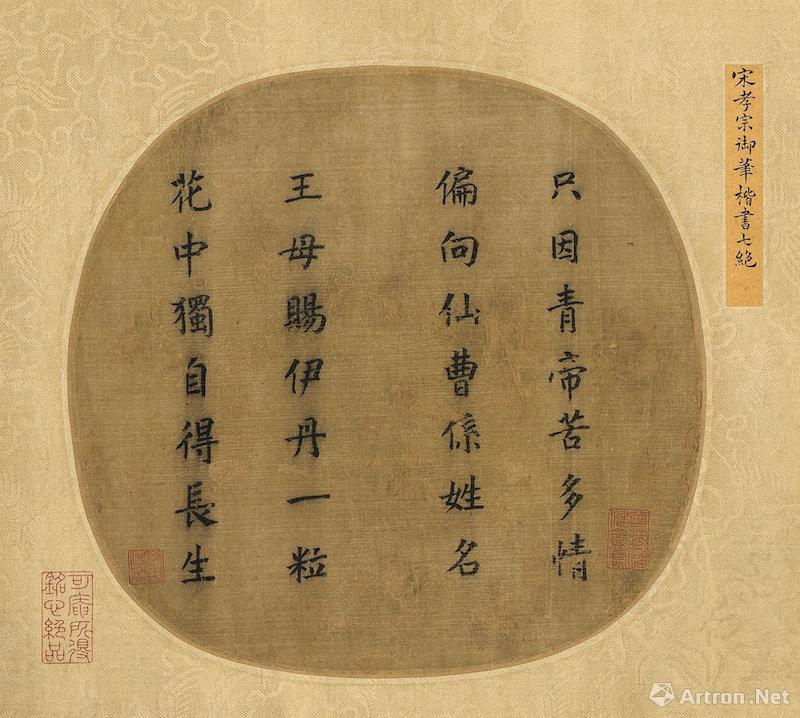 宋孝宗御筆楷書七絕
只因青帝苦多情
偏向仙曹係姓名
王母賜伊丹一粒
花中獨自得長生
可庵所得
銘心絕品
Artron.Net